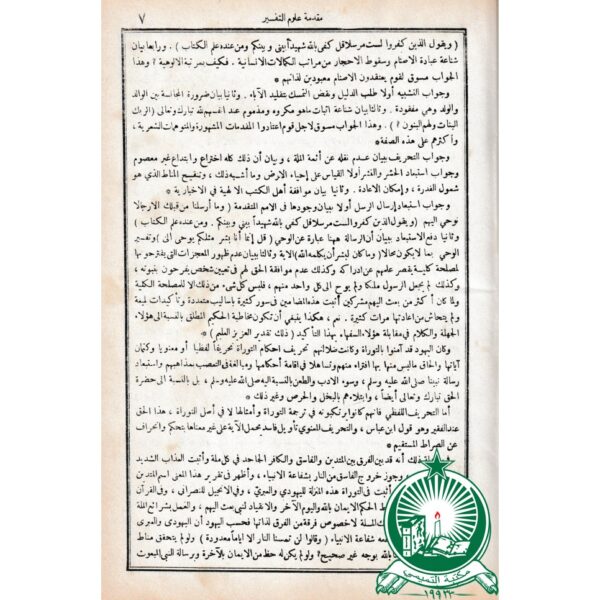 مقدمة علوم التفسير
٧
( ويقول الذين كفروا لست مرسلا قل كفى بالله شهيدا بينى وبينكم ومن عنده علم الكتاب ) . ورابعا بيان
شناعة عبادة الاصنام وسقوط الاحجار من مراتب الكمالات الانسانية . فكيف بمرتبة الالوهية ؟ وهذا
الجواب مسوق لقوم يعتقدون الاصنام معبودين لذاتهم *
وجواب التشبيه أولا طلب الدليل ونقض التمسك بتقليد الآباء . وثانيا بيان ضرورة المجانسة بين الوالد
والولد وهى مفقودة . وثالثا بيان شناعة اثبات ماهو مكروه ومذموم عند انفسهم لله تبارك وتعالى ( الربك
البنات ولهم البنون ؟ ) . وهذا الجواب مسوق لاجل قوم اعتادوا المقدمات المشهورة والمتوهمات الشعرية ،
وأكثرهم على هذه الصفة *
وجواب التحريف ببيان عدم نقله عن أئمة الملة ، و بيان أن ذلك كله اختراع وابتداع غير معصوم
وجواب استبعاد الحشر والنشر أولا القياس على إحياء الارض وما أشبه ذلك ، وتنقيح المناط الذى هو
شمول القدرة ، وإمكان الاعادة . وثانيا بيان موافقة أهل الكتب الالهية فى الاخبار به *
وجواب استبعاد إرسال الرسل أولا ببيان وجودها فى الامم المتقدمة ( وما أرسلنا من قبلك الا رجالا
نوحى اليهم ( ويقول الذين كفروا لست مرسلا قل كفى بالله شهيدا بينى وبينكم . ومن عنده علم الكتاب )
وثانيا دفع الاستبعاد ببيان أن الرسالة ههنا عبارة عن الوحى ( قل إنما أنا بشر مثلكم يوحى الى ) وتفسير
الوحى بما لايكون محالا ( وما كان لبشر أن يكلمه الله ) الاية وثالثا بيان عدم ظهور المعجزات التى يقترحونها
لمصلحة كلية يقصر علمهم عن ادراكه وكذلك عدم موافقة الحق لهم فى تعيين شخص يقرحون بنبوته ،
وكذلك لم يجعل الرسول ملكا ولم يوح الى كل واحد منهم ، فليس كل شىء من ذلك الا للمصلحة الكلية
ولما كان أكثر من بعث اليهم مشركين أثبت هذه المضامين فى سور كثيرة باساليب متعددة وتأكيدات بليغة
ولم يتحاش من اعادتها مرات كثيرة . نم ، هكذا ينبغى أن تكون مخاطبة الحكيم المطلق بالنسبة الى هؤلاء
الجهلة والكلام فى مقابلة هؤلاء السفهاء بهذا التأكيد ( ذلك تقدير العزيز العليم ) *
وكان اليهود قد آمنوا بالتوراة وكانت ضلالتهم تحريف احكام التوراة تحريفا لفظيا أو معنويا وكتمان
آياتها والحاق ماليس منها بها افتراء منهم وتساهلا فى اقامة أحكامها ومبالغة فى التعصب بمذاهبهم واستبعاد
رسالة نبينا صلى الله عليه وسلم ، وسوء الادب والطعن بالنسبة اليه صلى الله عليه وسلم ، بل بالنسبة الى حضرة
الحق تبارك وتعالى أيضا ، وابتلاءهم بالبخل والحرص وغير ذلك *
أما التحريف اللفظى فانهم كانوا يرتكبونه فى ترجمة التوراة وأمثالها لا فى أصل التوراة ، هذا الحق
عند الفقير وهو قول ابن عباس ، والتحريف المعنوى تأويل فاسد يحمل الآية على غير معناها بتحكم وانحراف
عن الصراط المستقيم *
ذلك أنه قد بين الفرق بين المتدين والفاسق والكافر الجاحد فى كل ملة وأثبت العذاب الشديد
وجوز خروج الفاسق من النار بشفاعة الانبياء ، وأظهر فى تقرير هذا المعنى اسم المتدين
أثبت فى التوراة هذه المنزلة لليهودى والعبرى ، وفى الانجيل للنصرانى ، وفى القرآن
الحكم الايمان بالله واليوم الآخر والانقياد لنبى بعث اليهم ، والعمل بشرائع الملة
الملة لا خصوص فرقة من الفرق لذاتها فحسب اليهود أن اليهودى والعبرى
شفاعة الانبياء ( وقالوا لن تمسنا النار الا اياما معدودة ) ولو لم يتحقق مناط
بالله بوجه غير صحيح ؟ ولو لم يكن له حظ من الايمان بالآخرة وبرسالة النبى المبعوث
مكتبة التميمي
١٩٩٢